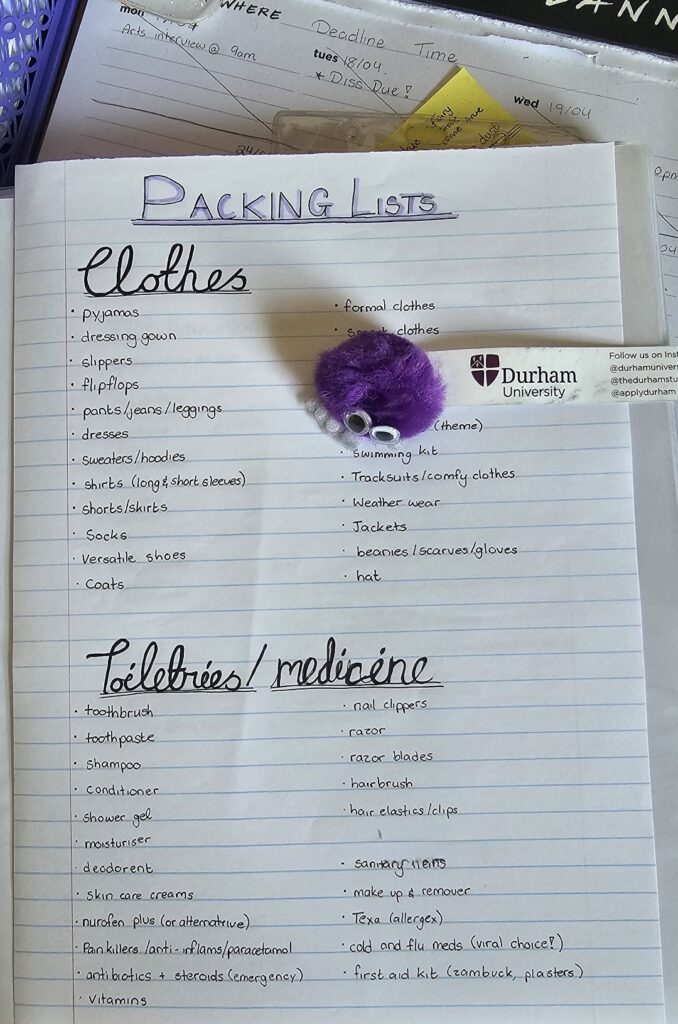 WHERE
mon
Arts interview @ 9am
Deadline Time
tues 18/04
* Diss Due!
wed 19/04
dust
PACKING LISTS
Clothes
· pyjamas
· dressing gown
· slippers
· flipflops
· pants/jeans/leggings
· dresses
· sweaters/hoodies
· shirts (long & short sleeves)
· shorts/skirts
· Socks
· Versatile shoes
· Coats
· formal clothes
clothes
(theme)
· Swimming kit
· Tracksuits/comfy clothes
· Weather wear
· Jackets
· beanies/scarves/gloves
· hat
Durham
University
Follow us on Inst
@durhamunivers
@thedurhamstu
@applydurham
Toiletries/medicine
· toothbrush
· toothpaste
· Shampoo
· Conditioner
· Shower gel
· moisturiser
· deodorent
· Skin care creams
· nurofen plus (or alternatrive)
· Pain killers /anti-inflams/paracetamol
· antibiotics + steroids (emergency)
· Vitamins
· nail clippers
· razor
· razor blades
· hairbrush
· hair elastics/clips
· sanitary items
· make up & remover
· Texa (allergex)
· cold and flu meds (viral choice!)
· first aid kit (zambuck, plasters)